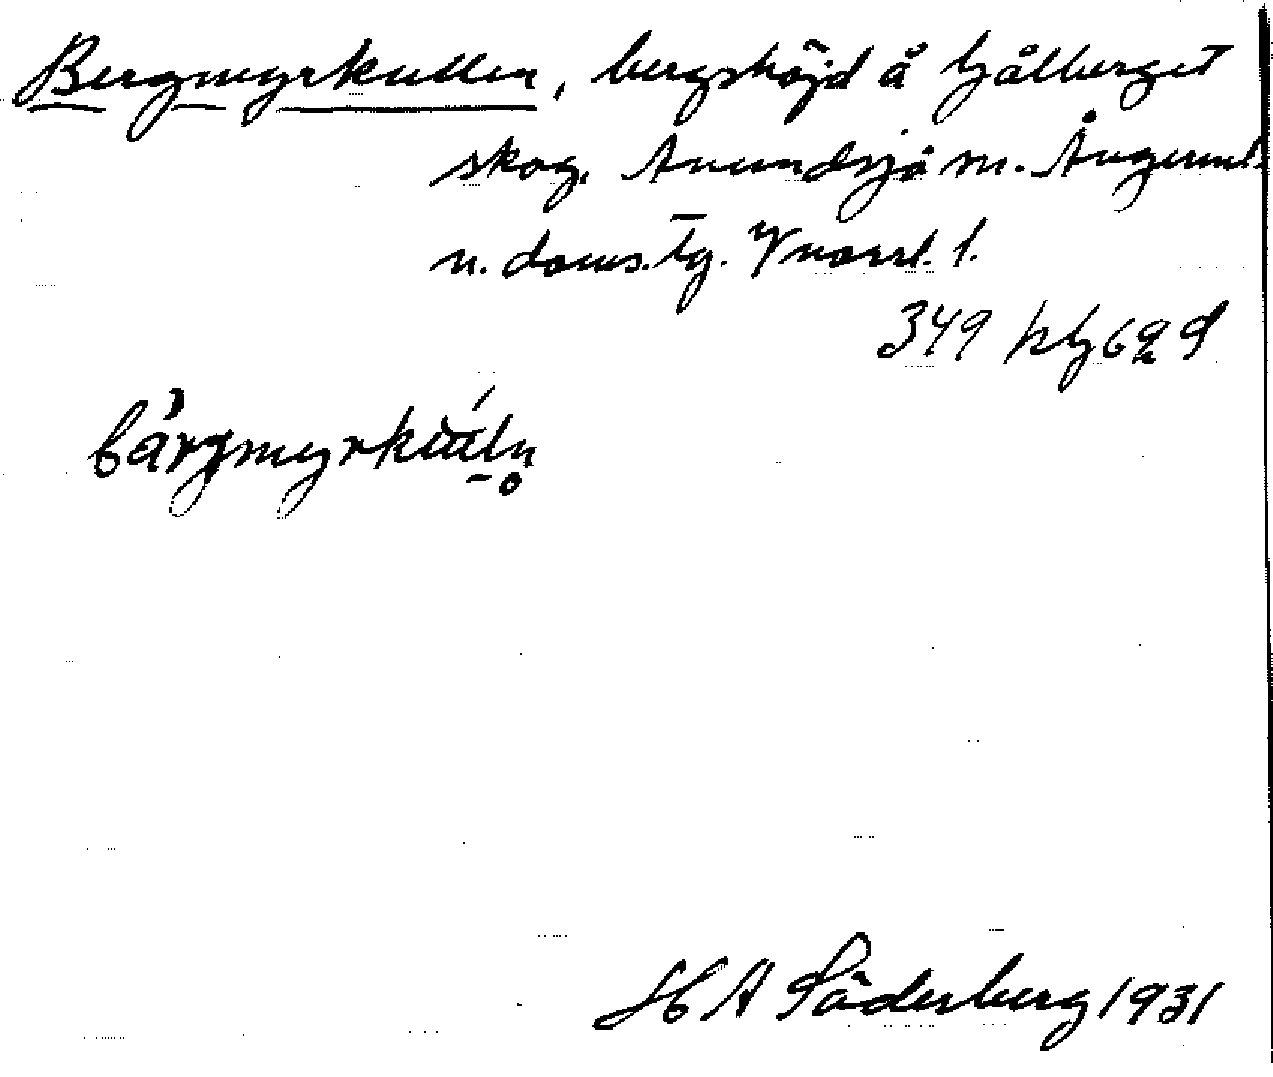 Bergmyrkullen, bergshöjd å Hjålberget
skog, Anundsjö sn. Ångerml.
n. doms. tg. Vnorrl. l.
349
bärgmyrkulln
H A Söderberg 1931